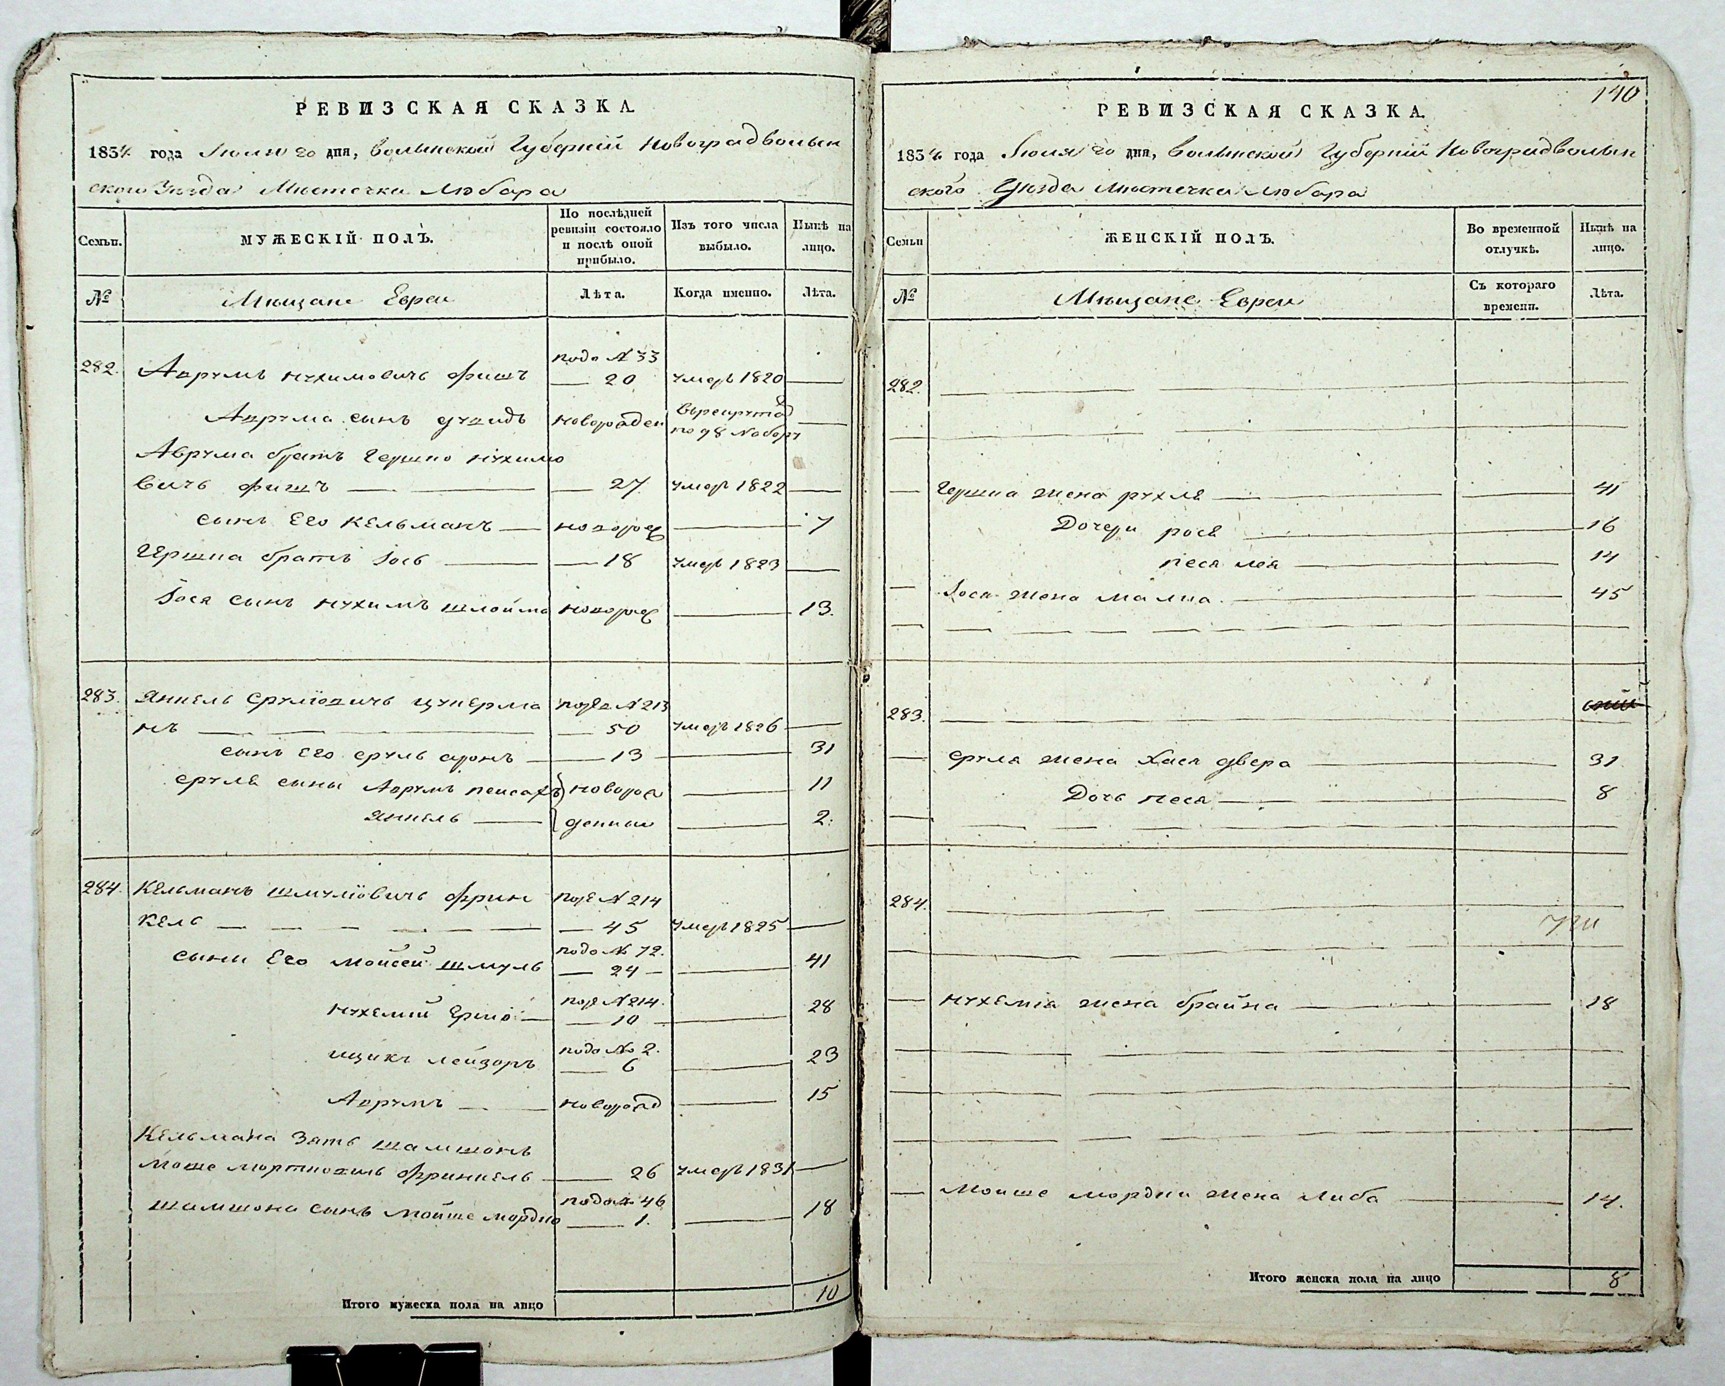 РЕВИЗСКАЯ СКАЗКА.
1834 года Июля 20 дня, Волынской Губерніи Новоградволын
ского Уезда Местечка Любара
Семьи.
МУЖЕСКІЙ ПОЛЪ.
По послѣдней
ревизіи состояло
и послѣ оной
прибыло.
Изъ того числа
выбыло.
Нынѣ на
лицо.
№
Мещане Евреи
Лѣта.
Когда именно.
Лѣта.
282. Аврумъ Нухимовичъ Фишъ подъ № 33 20 умеръ 1820
Аврума сынъ новорожден по 98 Набору
Аврума братъ Гершко Нухимо
вичъ Фишъ 27 умеръ 1822
сынъ Его Кельманъ новорож 7
Гершка братъ Іось 18 умеръ 1823
Іося сынъ Нухимъ Шлойма новорож 13.
283. Янкель Сруліовичъ Цукерма подъ № 213
нъ 50 умеръ 1826
сынъ Его Сруль Аронъ 13 31
Сруля сыны Аврумъ Пейсахъ новорож 11
Янкель денныи 2.
284. Кельманъ Шмуліовичъ Френ подъ № 214
кель 45 умеръ 1825
сыни Его Мойсей Шмуль подъ № 72. 24 41
Нухемій подъ № 214. 10 28
Ицикъ Лейзоръ подъ № 2. 6 23
Аврумъ новорожд 15
Кельмана зять Шамшонъ
Моше Морткович Френкель 26 умеръ 1831
Шамшона сынъ Мойше Мордко подъ № 46 1. 18
Итого мужеска пола на лицо 10
140
РЕВИЗСКАЯ СКАЗКА.
1834 года Июля 20 дня, Волынской Губерніи Новоградволын
ского Уезда Местечка Любара
Семьи
ЖЕНСКІЙ ПОЛЪ.
Во временной
отлучкѣ.
Нынѣ на
лицо.
№
Мещане Евреи
Съ котораго
времени.
Лѣта.
282.
Гершка жена Рухля 41
Дочери Рося 16
Песя Лея 14
Іося жена Малка 45
283.
Сруля жена Хася Двера 31
Дочь Песя 8
284.
Нухемія жена Брайна 18
Моише Мордки жена Либа 14.
Итого женска пола на лицо 8